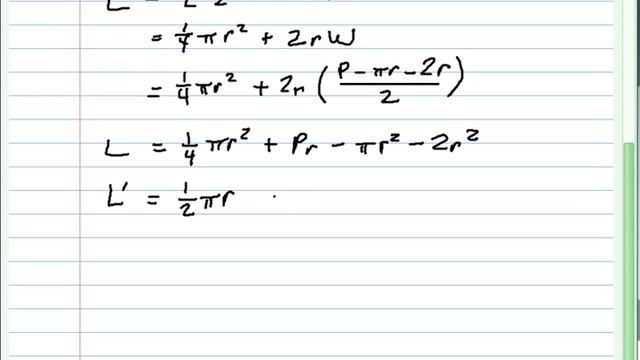 = ¼πr² + 2rW
= ¼πr² + 2r (P-πr-2r / 2)
L = ¼πr² + Pr - πr² - 2r²
L' = ½πr